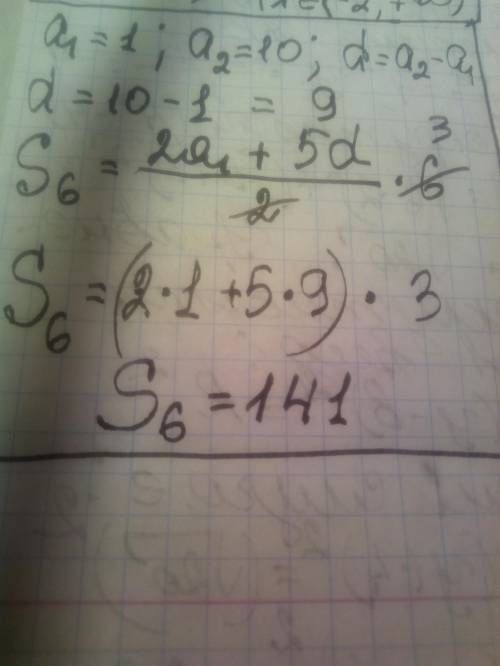 a₁ = 1; a₂ = 10; d = a₂ - a₁
d = 10 - 1 = 9
S₆ = (2a₁ + 5d)/2 · 6 3
S₆ = (2·1 + 5·9) · 3
S₆ = 141